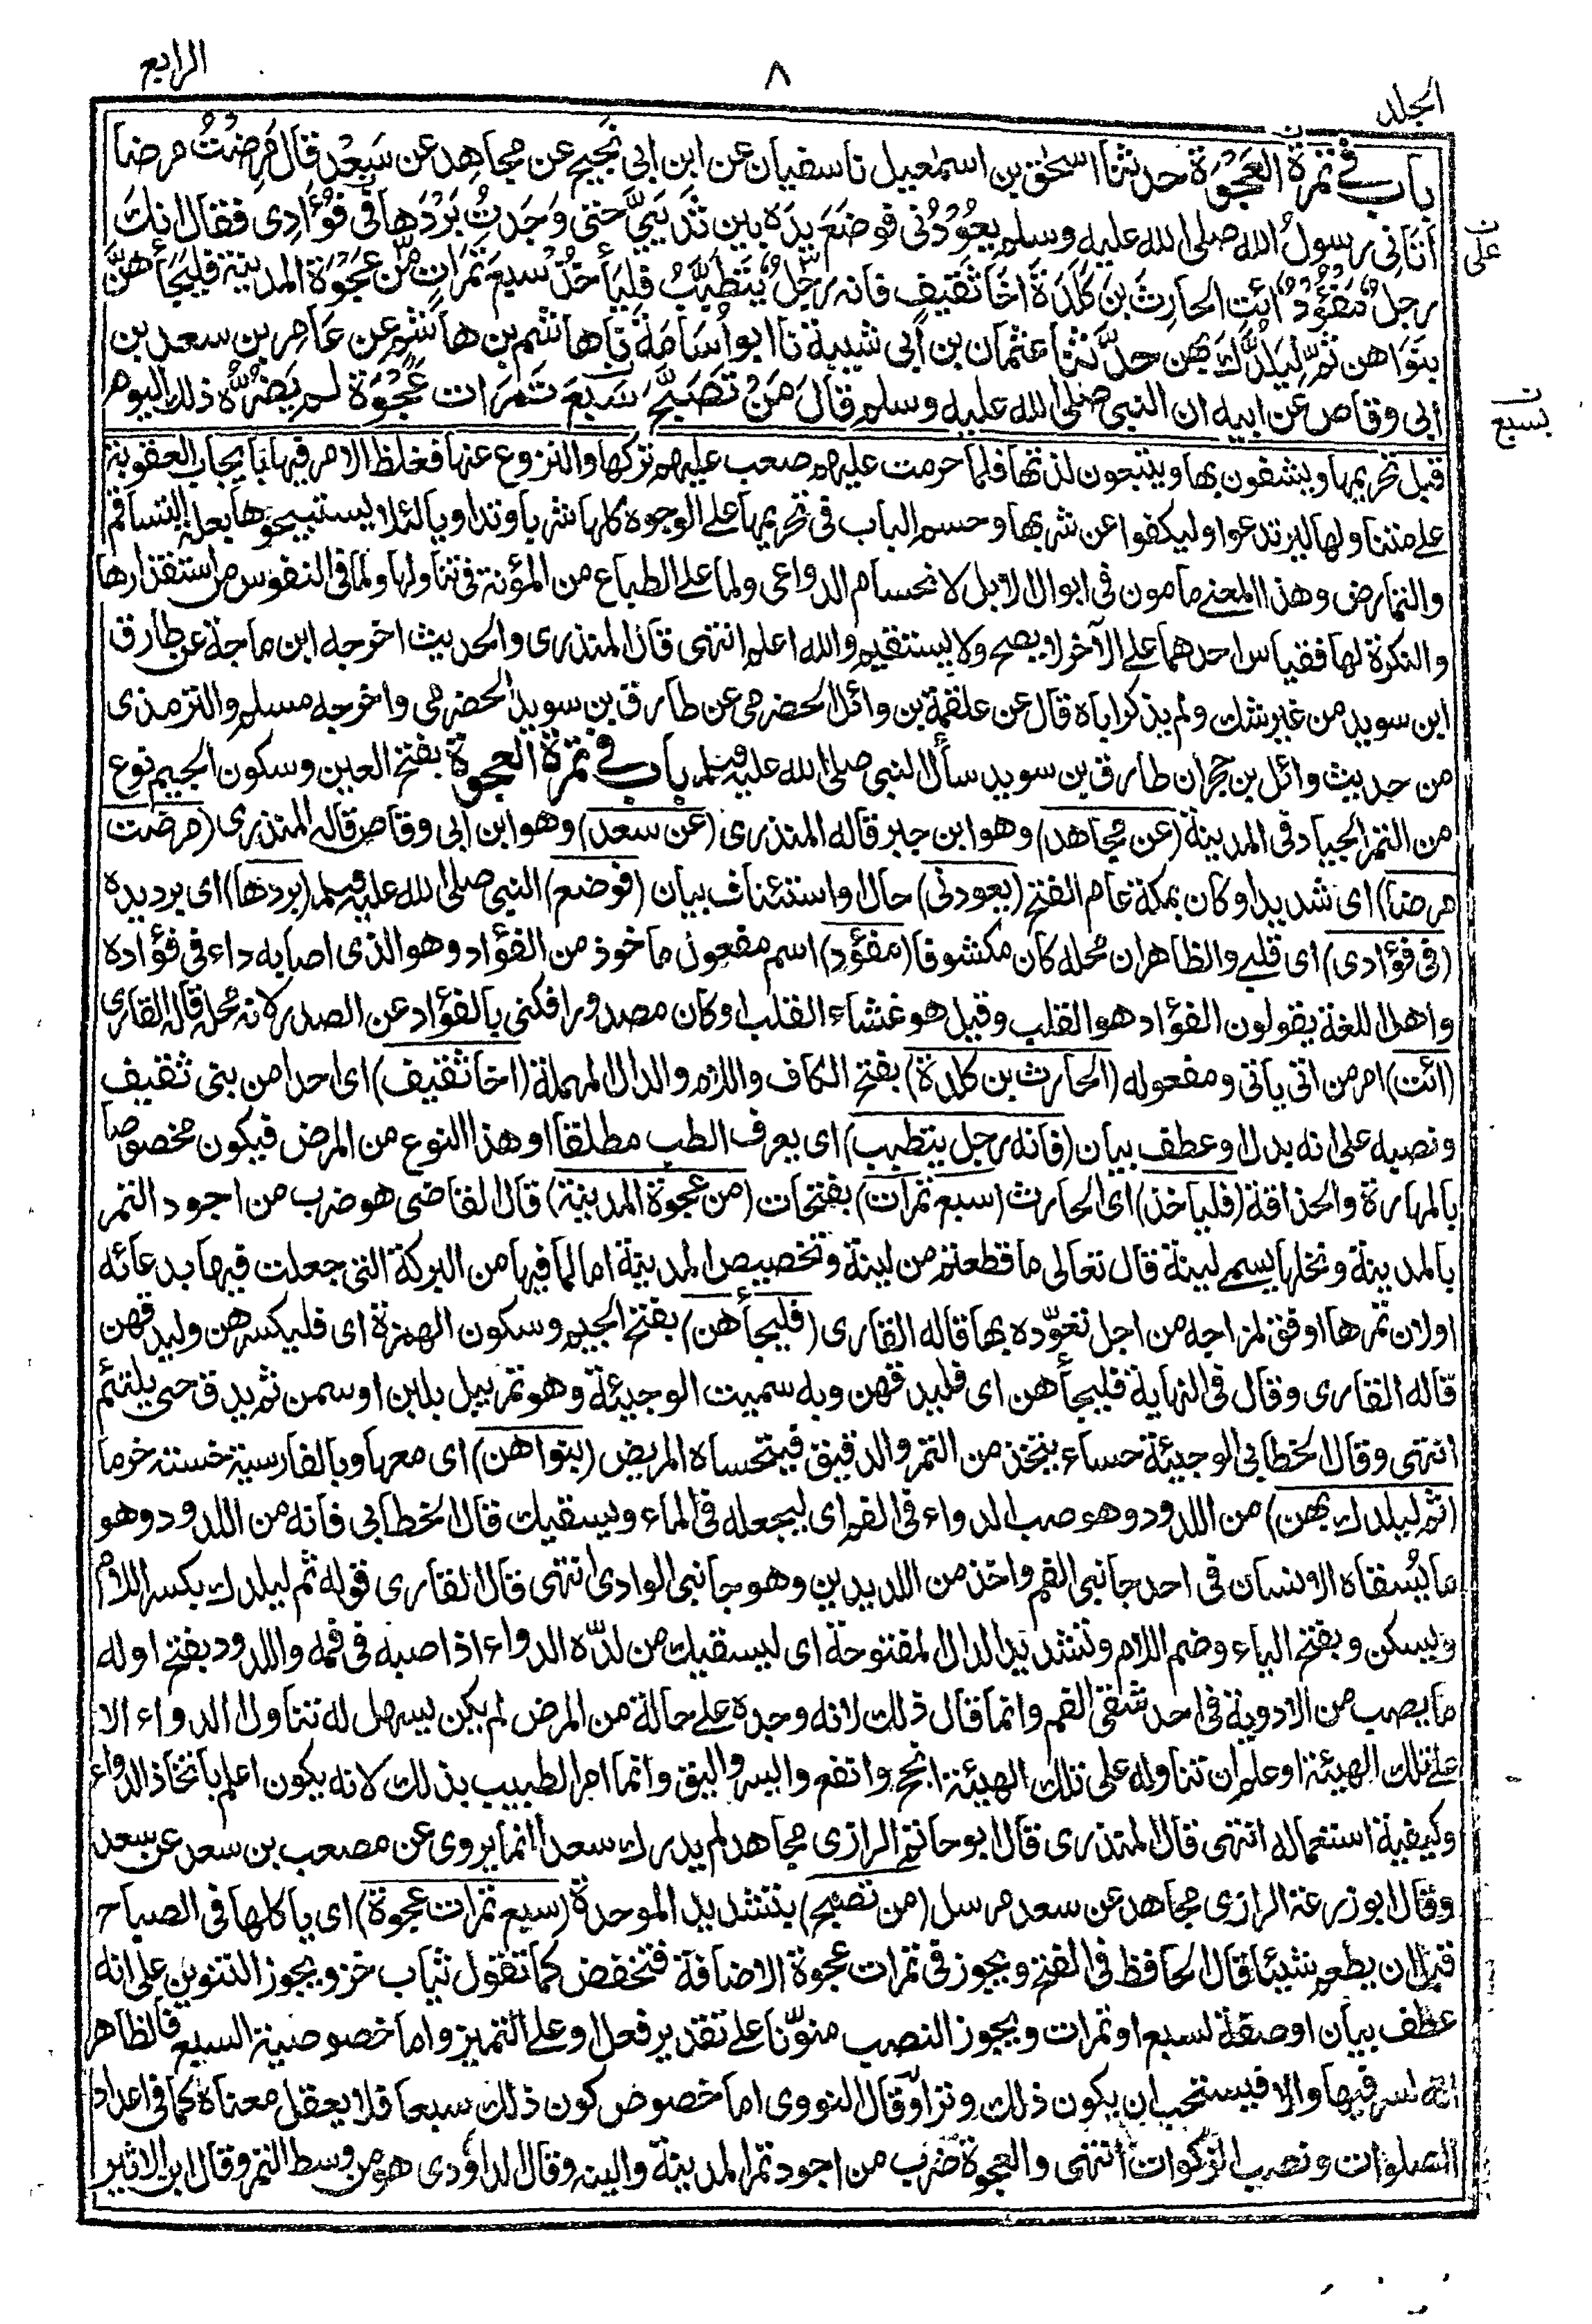 الجلد
٨
الرابع
باب في تمرة العَجْوَة حدثنا اسحٰق بن اسمٰعيل نا سفيان عن ابن ابي نَجِيح عن مجاهِد عن سَعْد قال مَرِضْتُ مرضا
اَتَانِي رسولُ الله صلى الله عليه وسلم يعُوْدُنِي فوضَعَ يدَهُ بين ثَدْيَيَّ حتى وَجَدتُ بَرْدَهَا في فُؤَادِي فقال انك
رجلٌ مَفْؤُدٌ اِئتِ الحارِثَ بنَ كَلَدَةَ اَخَا ثَقِيفٍ فانه رجُلٌ يَتَطَبَّبُ فليَأخُذْ سبعَ تَمَرَاتٍ مِّن عَجْوَةِ المدينةِ فليَجَأْهُنَّ
بنَوَاهن ثمَّ لِيَلُدَّكَ بهن حدَّثنا عثمان بن اَبي شيبة نا ابو اُسَامَةَ نا هاشم بن هاشمٍ عن عَامِر بن سعد بن
اَبي وقاص عن ابيه ان النبي صلى الله عليه وسلم قال مَنْ تَصَبَّحَ سَبْعَ تَمَرَات عَجْوَةً لم يَضُرُّهُ ذلك اليوم
على
بسبع
قبل تحريمها وينشفون بها ويتبعون لذتها فلما حرمت عليهم صعب عليهم تركها والنزوع عنها فغلظ الامر فيها بايجاب العقوبة
على متناولها ليرتدعوا وليكفوا عن شربها وحسم الباب في تحريمها على الوجوه كلها شربا وتداويا لئلا يستبيحوها بعلة التساقم
والتمارض وهذا المعنى مامون في ابوال الابل لانحسام الدواعي ولما على الطباع من المؤنة في تناولها ولما في النفوس من استقذارها
والنكرة لها فقياس احدهما على الآخر لا يصح ولا يستقيم والله اعلم انتهى قال المنذري والحديث اخرجه ابن ماجة عن طارق
ابن سويد من غير شك ولم يذكر اباه قال عن علقمة بن وائل الحضرمي عن طارق بن سويد الحضرمي واخرجه مسلم والترمذي
من حديث وائل بن حجران طارق بن سويد سأل النبي صلى الله عليه وسلم باب في تمرة العجوة بفتح العين وسكون الجيم نوع
من التمر الجياد في المدينة (عن مجاهد) وهو ابن جبر قاله المنذري (عن سعد) وهو ابن ابي وقاص قاله المنذري (مرضت
مرضا) اى شديدا وكان بمكة عام الفتح (يعودني) حال او استئناف بيان (فوضع) النبي صلى الله عليه وسلم (بردها) اى برد يده
(في فؤادي) اى قلبي والظاهر ان محله كان مكشوفا (مفؤد) اسم مفعول ماخوذ من الفؤاد وهو الذي اصابه داء في فؤاده
واهل اللغة يقولون الفؤاد هو القلب وقيل هو غشاء القلب او كان مصدورا فكنى بالفؤاد عن الصدر لانه محله قاله القاري
(ائت) امر من اتى ياتي ومفعوله (الحارث بن كلدة) بفتح الكاف واللام والدال المهملة (اخا ثقيف) اى احدا من بني ثقيف
ونصبه على انه بدل او عطف بيان (فانه رجل يتطبب) اى يعرف الطب مطلقا او هذا النوع من المرض فيكون مخصوصا
بالمهارة والحذاقة (فلياخذ) اى الحارث (سبع تمرات) بفتحات (من عجوة المدينة) قال القاضي هو ضرب من اجود التمر
بالمدينة ونخلها يسمى لينة قال تعالى ما قطعتم من لينة وتخصيص المدينة اما لما فيها من البركة التي جعلت فيها بدعائه
او لان تمرها اوفق لمزاجه من اجل تعوّده بها قاله القاري (فليجأهن) بفتح الجيم وسكون الهمزة اى فليكسرهن وليدقهن
قاله القاري وقال في النهاية فليجأهن اى فليدقهن وبه سميت الوجيئة وهو تمر يبل بلبن او سمن ثم يدق حتى يلتئم
انتهى وقال الخطابي الوجيئة حساء يتخذ من التمر والدقيق فيتحساه المريض (بنواهن) اى معها وبالفارسية خسته خرما
(ثم ليلدك بهن) من اللدود وهو صب الدواء في الفم اى ليجعله في الماء ويسقيك قال الخطابي فانه من اللدود وهو
ما يُسقاه الانسان في احد جانبي الفم واخذ من اللديدين وهو جانبي الوادي انتهى قال القاري قوله ثم ليلدك بكسر اللام
ويسكن وبفتح الياء وضم اللام وتشديد الدال المفتوحة اى ليسقيك من لدّه الدواء اذا صبه في فمه واللدود بفتح اوله
ما يصب من الادوية في احد شقي الفم وانما قال ذلك لانه وجده على حالة من المرض لم يكن يسهل له تناول الدواء الا
على تلك الهيئة او علم ان تناوله على تلك الهيئة انجح وانفع وايسر واليق وانما امر الطبيب بذلك لانه يكون اعلم باتخاذ الدواء
وكيفية استعماله انتهى قال المنذري قال ابو حاتم الرازي مجاهد لم يدرك سعدا انما يروى عن مصعب بن سعد عن سعد
وقال ابو زرعة الرازي مجاهد عن سعد مرسل (من تصبح) بتشديد الموحدة (سبع تمرات عجوة) اى ياكلها في الصباح
قبل ان يطعم شيئا قال الحافظ في الفتح ويجوز في تمرات عجوة الاضافة فتخفض كما تقول ثياب خز ويجوز التنوين على انه
عطف بيان او صفة لسبع او تمرات ويجوز النصب منوّنا على تقدير فعل او على التمييز واما خصوصية السبع فالظاهر
انه لسر فيها والا فيستحب ان يكون ذلك وترا وقال النووي اما خصوص كون ذلك سبعا فلا يعقل معناه كما في اعداد
الصلوات ونصب الزكوات انتهى والعجوة ضرب من اجود تمر المدينة والينه وقال الداوُدي هو من وسط التمر وقال ابن الاثير